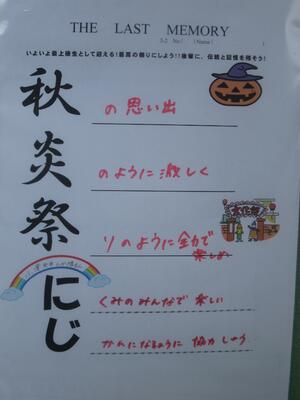 THE LAST MEMORY
3-2 No.( ) (Name)
いよいよ最上級生として迎える!最高の飾りにしよう!!後輩に、伝統と記憶を残そう!
秋 の思い出
炎 のように激しく
祭 りのように全力で
楽しめ
文化祭
に くみのみんなで楽しい
じ かんになるように協力しよう